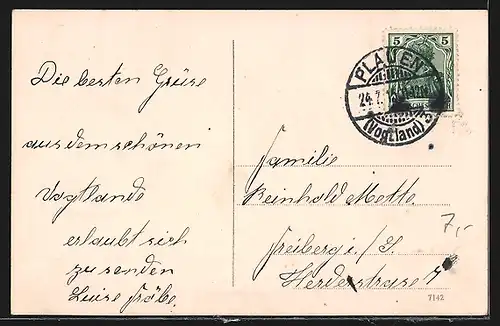 Die besten Grüse
aus dem schönen
Vogtlande
erlaubt sich
zu senden
Luise Fröbe.
5 5
PLAUEN
24.7.
(Vogtland)
Familie
Reinhold Motte
Freiberg i./S.
Herderstrase 7
7,-
7142